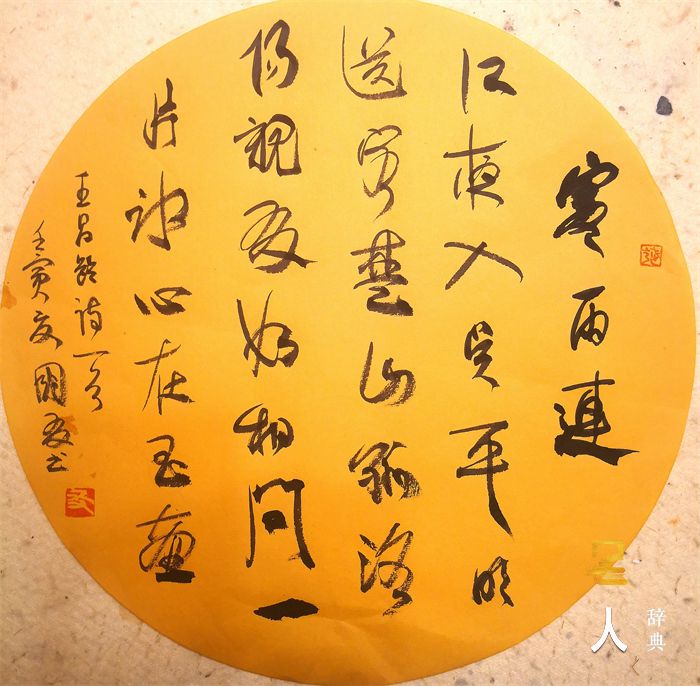 寒雨連
江夜入吴平明
送客楚山孤洛
陽親友如相問一
片冰心在玉壶
王昌龄诗一首
壬寅夏國友书
人
辞典